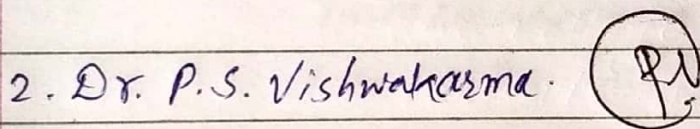 2. Dr. P.S. Vishwakarma.